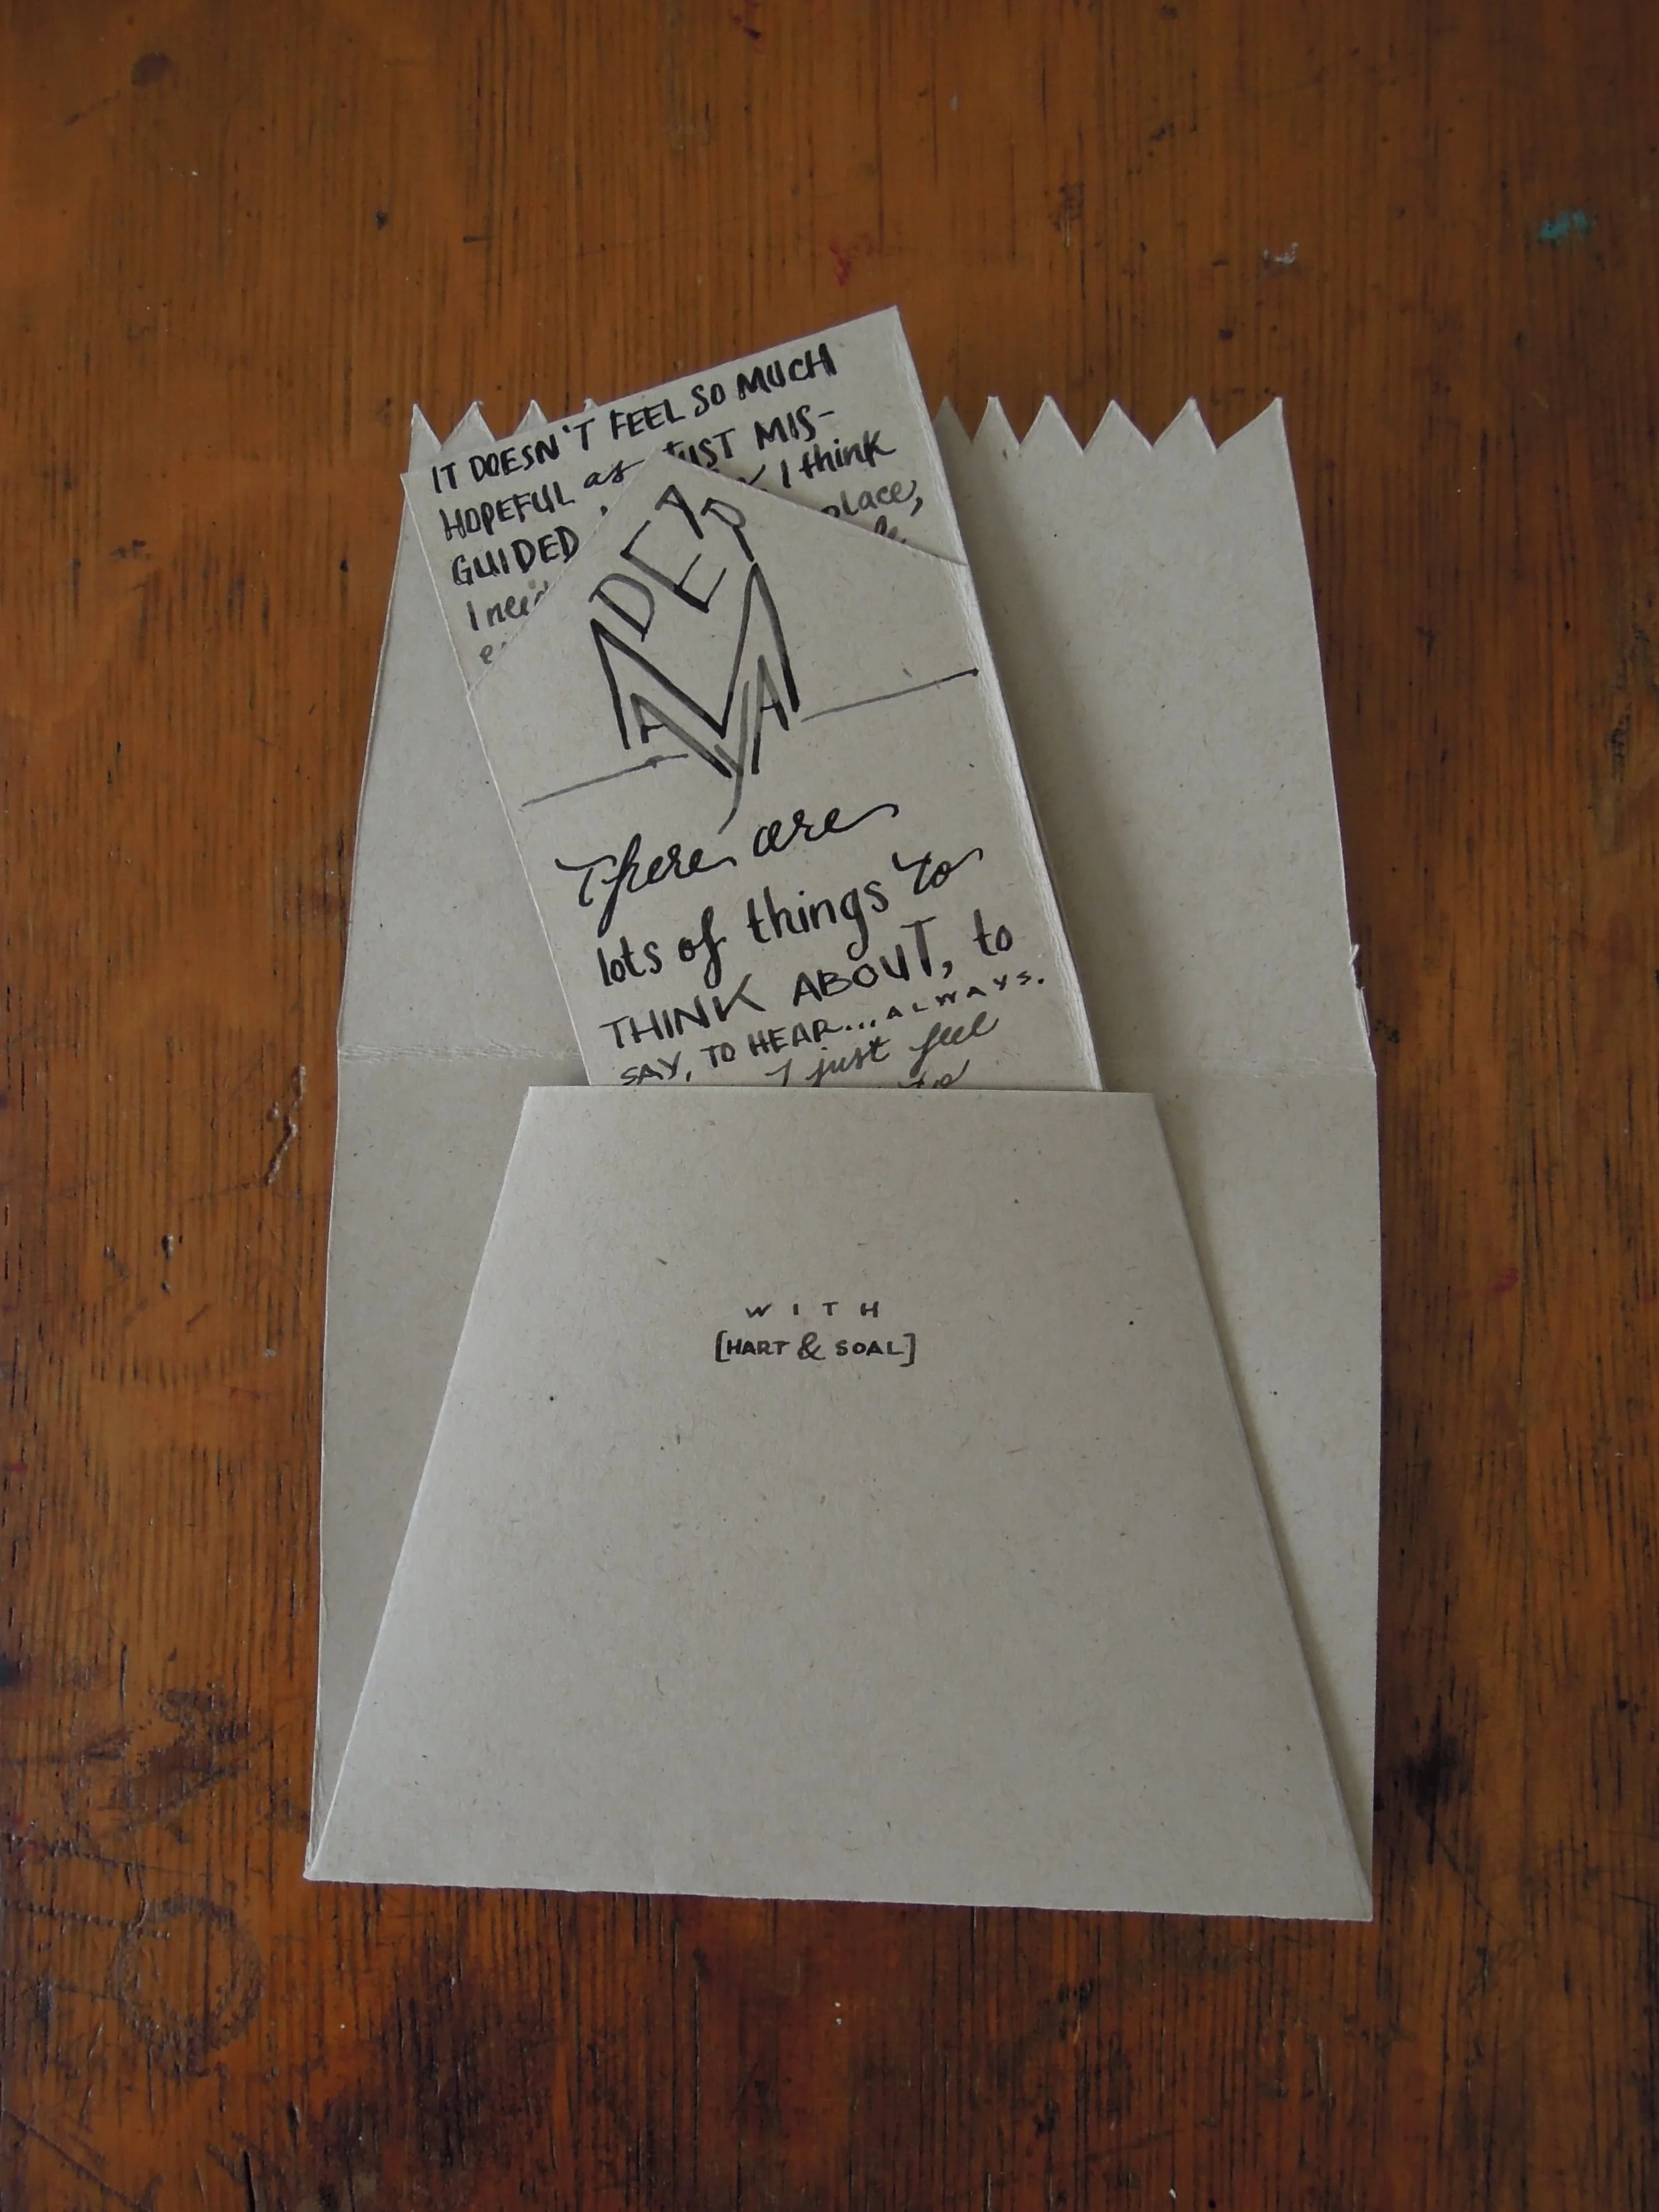 IT DOESN'T FEEL SO MUCH
HOPEFUL as JUST MIS-
GUIDED I think
I need place,
DEAR
MAYA
There are
lots of things to
THINK ABOUT, to
SAY, TO HEAR... ALWAYS.
I just feel
to
WITH
[HART & SOAL]